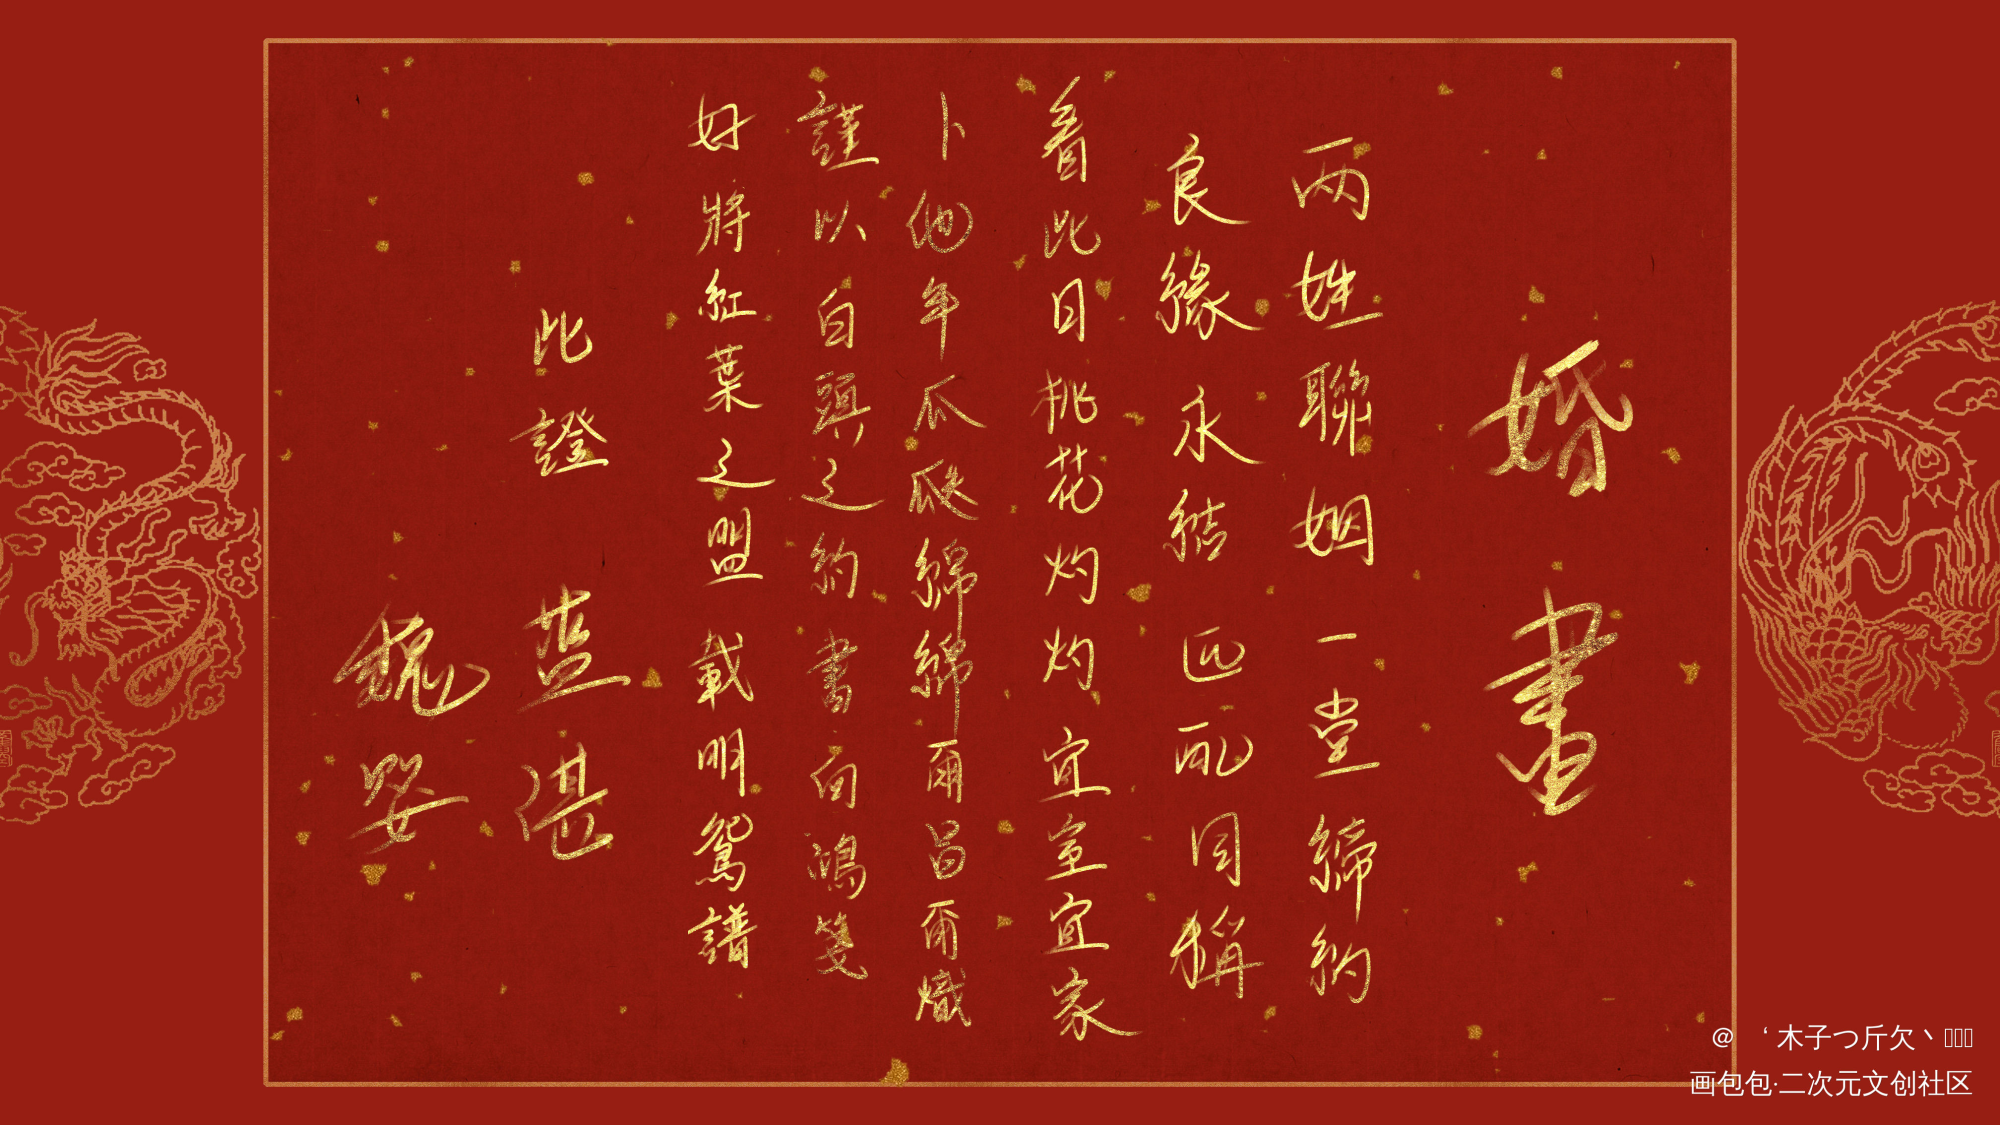 婚書
两姓聯姻 一堂締約
良緣永結 匹配同稱
看此日桃花灼灼 宜室宜家
卜他年瓜瓞綿綿 爾昌爾熾
謹以白頭之約 書向鴻箋
好將紅葉之盟 載明鴛譜
此證 藍湛
魏嬰
@ ‘木子つ斤欠丶
画包包·二次元文创社区